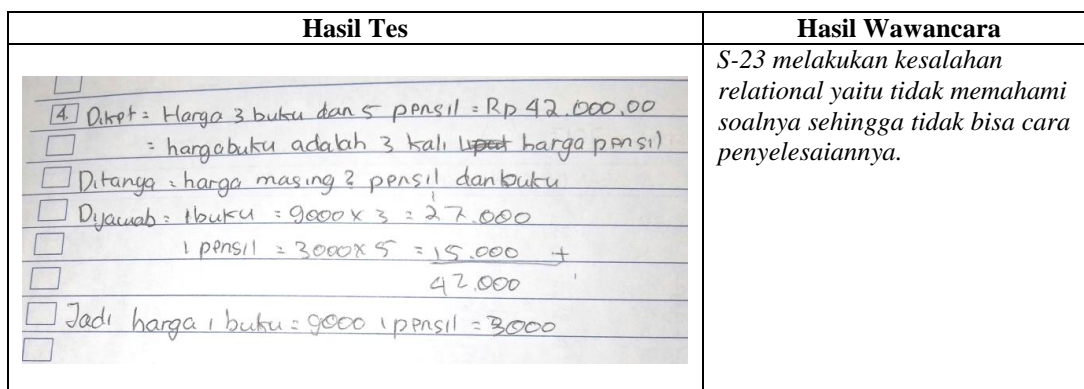 Hasil Tes
Hasil Wawancara
4. Diket = Harga 3 buku dan 5 pensil = Rp 42.000.00
= harga buku adalah 3 kali harga pensil
Ditanya = harga masing 2 pensil dan buku
Dijawab = 1 buku = 9000 x 3 = 27.000
1 pensil = 3000 x 5 = 15.000 +
42.000
Jadi harga 1 buku = 9000 1 pensil = 3000
S-23 melakukan kesalahan
relational yaitu tidak memahami
soalnya sehingga tidak bisa cara
penyelesaiannya.